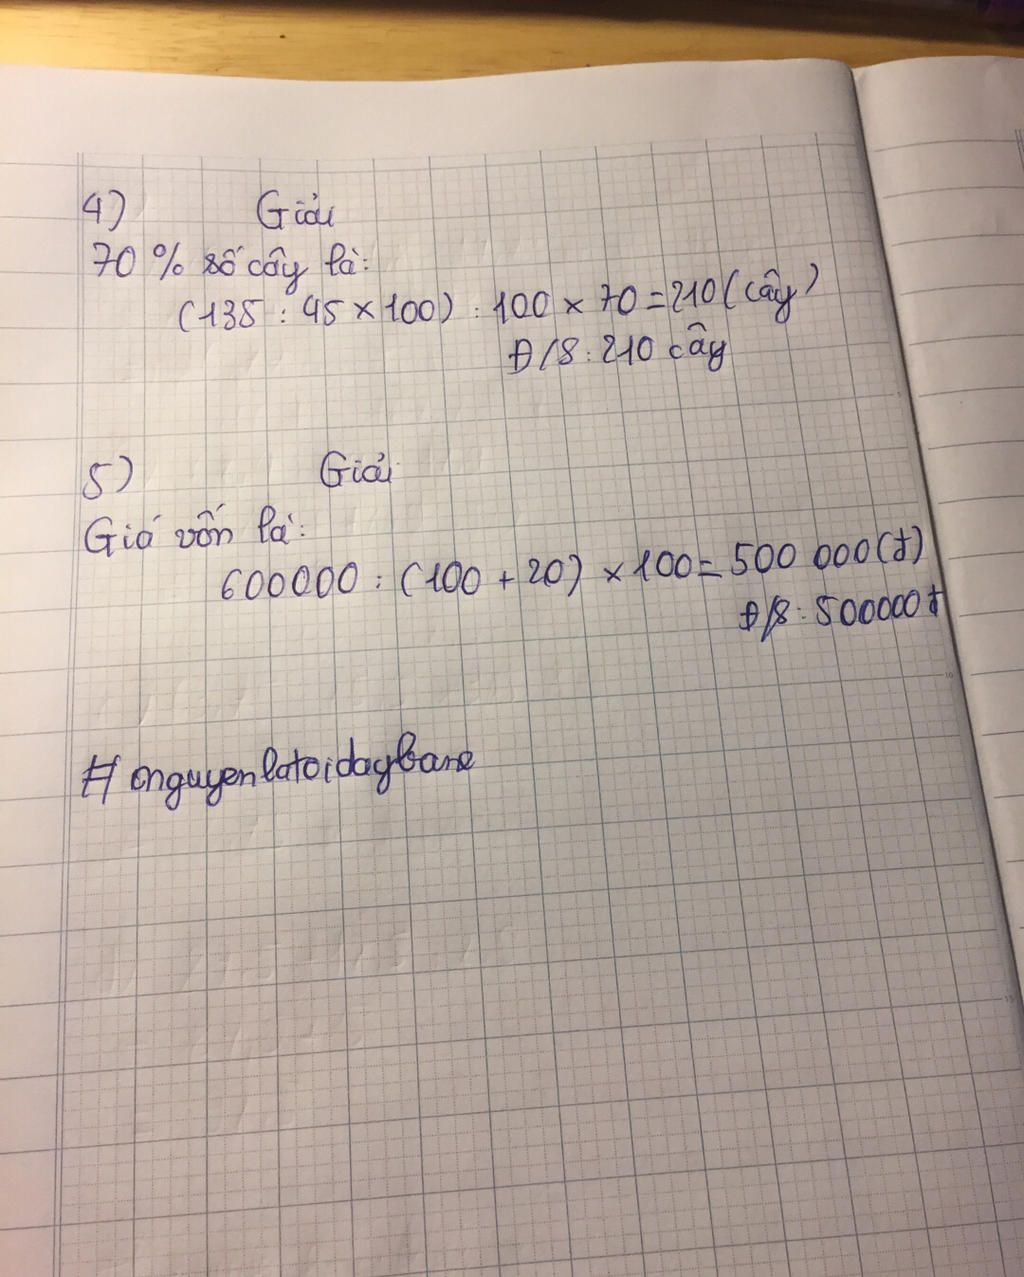 4) Giải
70 % số cây là:
(135 : 45 x 100) : 100 x 70 = 210 (cây)
Đ/S : 210 cây
5) Giải
Giá vốn là:
600000 : (100 + 20) x 100 = 500 000 (đ)
Đ/S : 500000 đ
# nguyenlatoidaybane